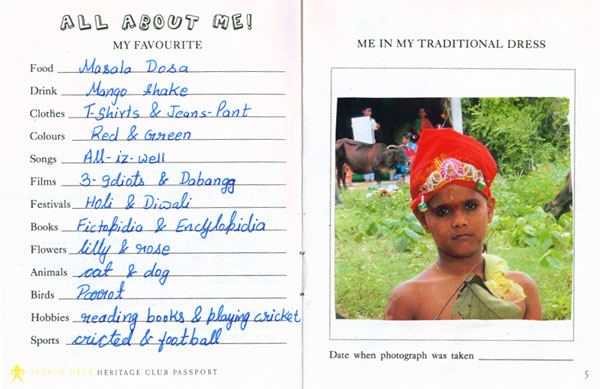 ALL ABOUT ME!
MY FAVOURITE
Food Masala Dosa
Drink Mango Shake
Clothes T-Shirts & Jeans-Pant
Colours Red & Green
Songs All-iz-well
Films 3-Idiots & Dabangg
Festivals Holi & Diwali
Books Fictopidia & Encylopidia
Flowers lilly & rose
Animals cat & dog
Birds Parrot
Hobbies reading books & playing cricket
Sports cricted & football
INTACH HECS HERITAGE CLUB PASSPORT
ME IN MY TRADITIONAL DRESS
Date when photograph was taken
5